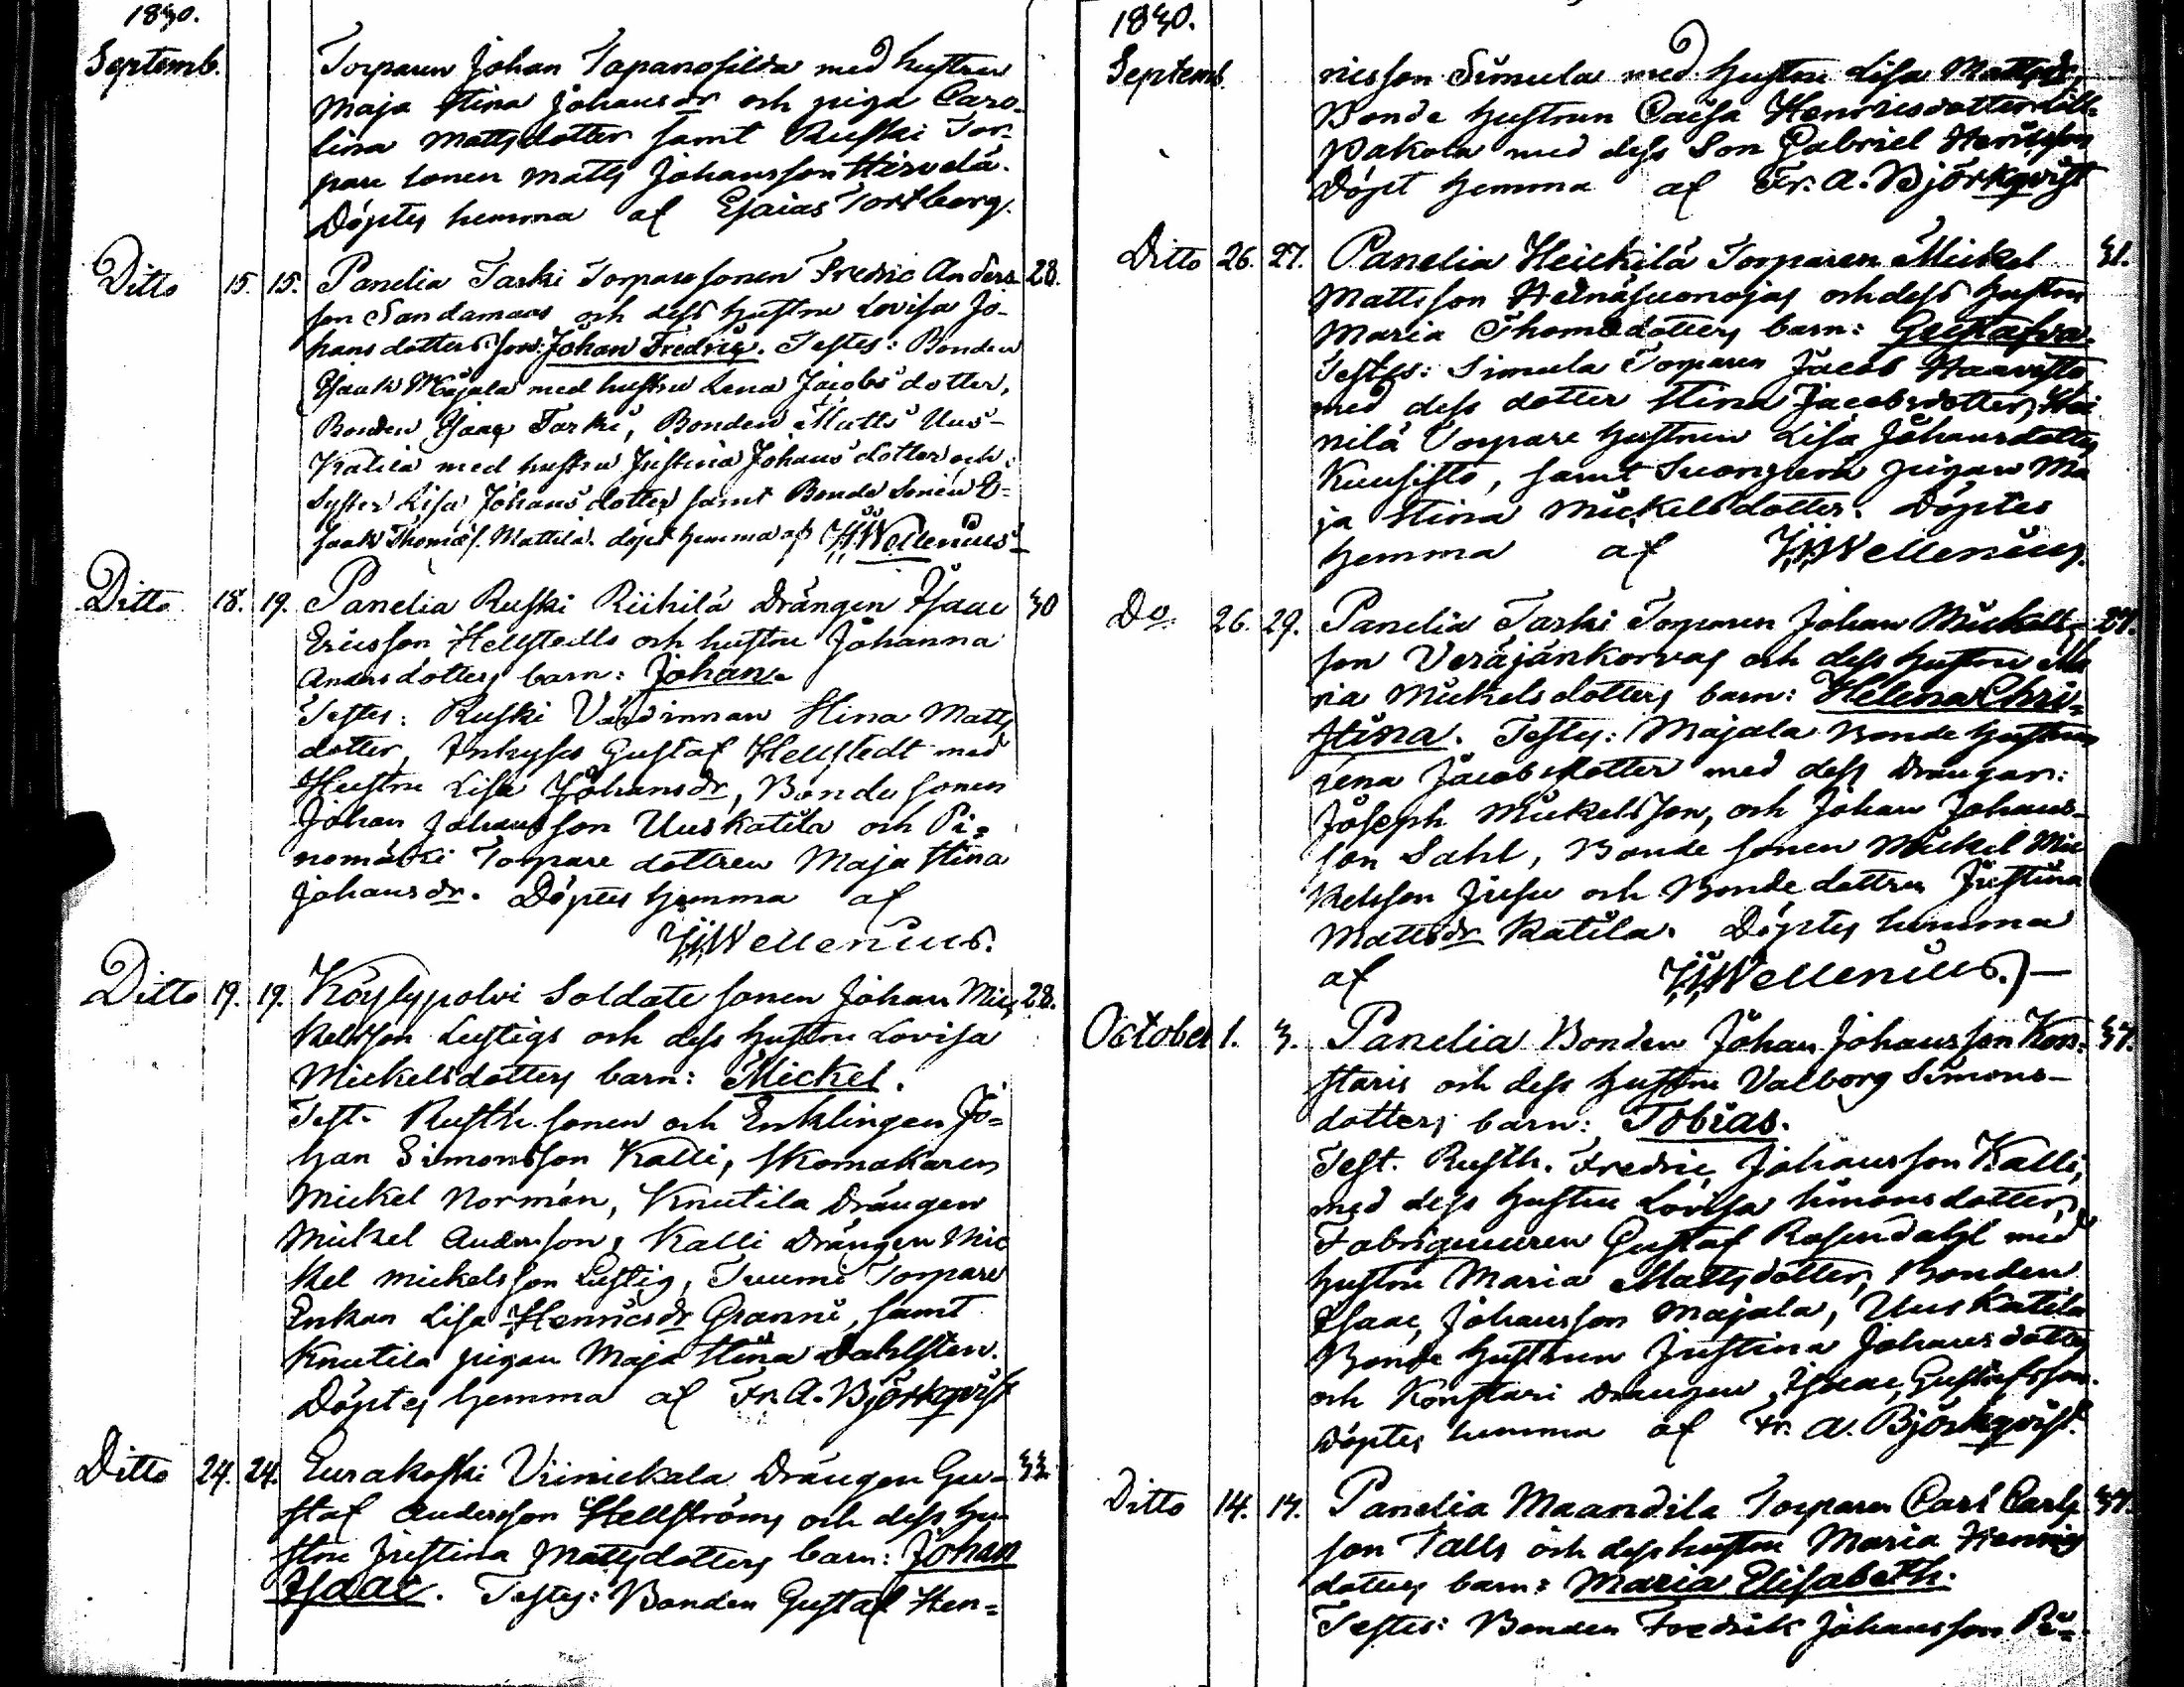 1830.
Septemb.
Torparen Johan Tapanosilda med hustru
Maja Stina Johansdr och piga Caro-
lina Mattsdotter samt Ruski Tor-
pare sonen Matts Johansson Hirvelä.
Döptes hemma af Esaias Torfborg.
Ditto 15. 15. Panelia Tarki Torparesonen Fredric Anders- 28.
son Sandamaas och dess hustru Lovisa Jo-
hansdotters son: Johan Fredric. Testes: Bonden
Isaak Majala med hustru Lena Jacobsdotter,
Bonden Isaac Tarki, Bonden Matts Uus-
Katila med hustru Justina Johansdotter och
Syster Lisa Johansdotter samt Bonde Sonen E-
saak Thomæs. Mattila. döpt hemma af Wellenius
Ditto 18. 19. Panelia Ruski Riihilä Drängen Isaac 30
Ericsson Hellstedts och hustru Johanna
Andersdotters barn: Johan.
Testes: Ruski Värdinnan Stina Matts
dotter, Inhyses Gustaf Hellstedt med
Hustru Lisa Johansdr, Bonde sonen
Johan Johansson Uuskatila och Pi=
nomäki Torpare dottren Maja Stina
Johansdr. Döptes hemma af
Wellenius.
Ditto 19. 19. Köylypolvi Soldate sonen Johan Mic- 28.
kelsson Lustigs och dess hustru Lovisa
Mickelsdotters barn: Mickel.
Test. Rusth. sonen och Enklingen Jo=
han Simonsson Kalli, Skomakaren
Mickel Normén, Knutila Drängen
Mickel Andersson, Kalli Drängen Mic
kel Mickelsson Lustig, Tuumi Torpare
Enkan Lisa Henricsdr Granni, samt
Knutila pigan Maja Stina Dahlsten.
Döptes hemma af Fr. A. Björkqvist
Ditto 24. 24. Eurakoski Viinickala Drängen Gu- 33.
staf Andersson Hellströms och dess hu-
stru Justina Mattsdotters barn: Johan
Isaac. Testes: Bonden Gustaf Hen=
1830.
Septemb.
ricsson Simula med hustru Lisa Mattsdr,
Bonde hustrun Caisa Henricsdotter
Pakola med dess Son Gabriel Henricsson
Döpt hemma af Fr. A. Björkqvist
Ditto 26. 27. Panelia Heickilä Torparen Mickel 31.
Mattsson Heinäsuonojas och dess hustru
Maria Thomædotters barn: Gustafva.
Testes: Simula Torparen Jacob Haavisto
med dess dotter Stina Jacobsdotter, Hei
nilä Torpare hustrun Lisa Johansdotter
Kuusisto, samt Suonperä pigan Ma
ja Stina Mickelsdotter. Döptes
hemma af Wellenius.
Do. 26. 29. Panelia Tarki Torparen Johan Mickels- 27.
son Veräjänkorvas och dess hustru Ma
ria Mickelsdotters barn: Helena Chri-
stina. Testes: Majala Bonde hustrun
Lena Jacobsdotter med dess Drängar:
Joseph Mickelsson, och Johan Johans-
son Dahl, Bonde sonen Mickel Mic
kelsson Jusu och Bonde dottren Justina
Mattsdr Katila. Döptes hemma
af Wellenius.
October 1. 3. Panelia Bonden Johan Johansson Kon- 37.
staris och dess hustru Valborg Simons-
dotters barn: Tobias.
Test. Rusth. Fredric Johansson Kalli,
med dess hustru Lovisa Simonsdotter,
Fabriqueuren Gustaf Rosendahl med
hustru Maria Mattsdotter, Bonden
Isaac Johansson Majala, Uus Katila
Bonde hustrun Justina Johansdotter
och Konstari Drängen Isaac Gustafsson.
Döptes hemma af Fr. A. Björkqvist.
Ditto 14. 17. Panelia Maandila Torparen Carl Carls 37.
son Talls och dess hustru Maria Henrics
dotters barn: Maria Elisabeth.
Testes: Bonden Fredrik Johansson Pii-